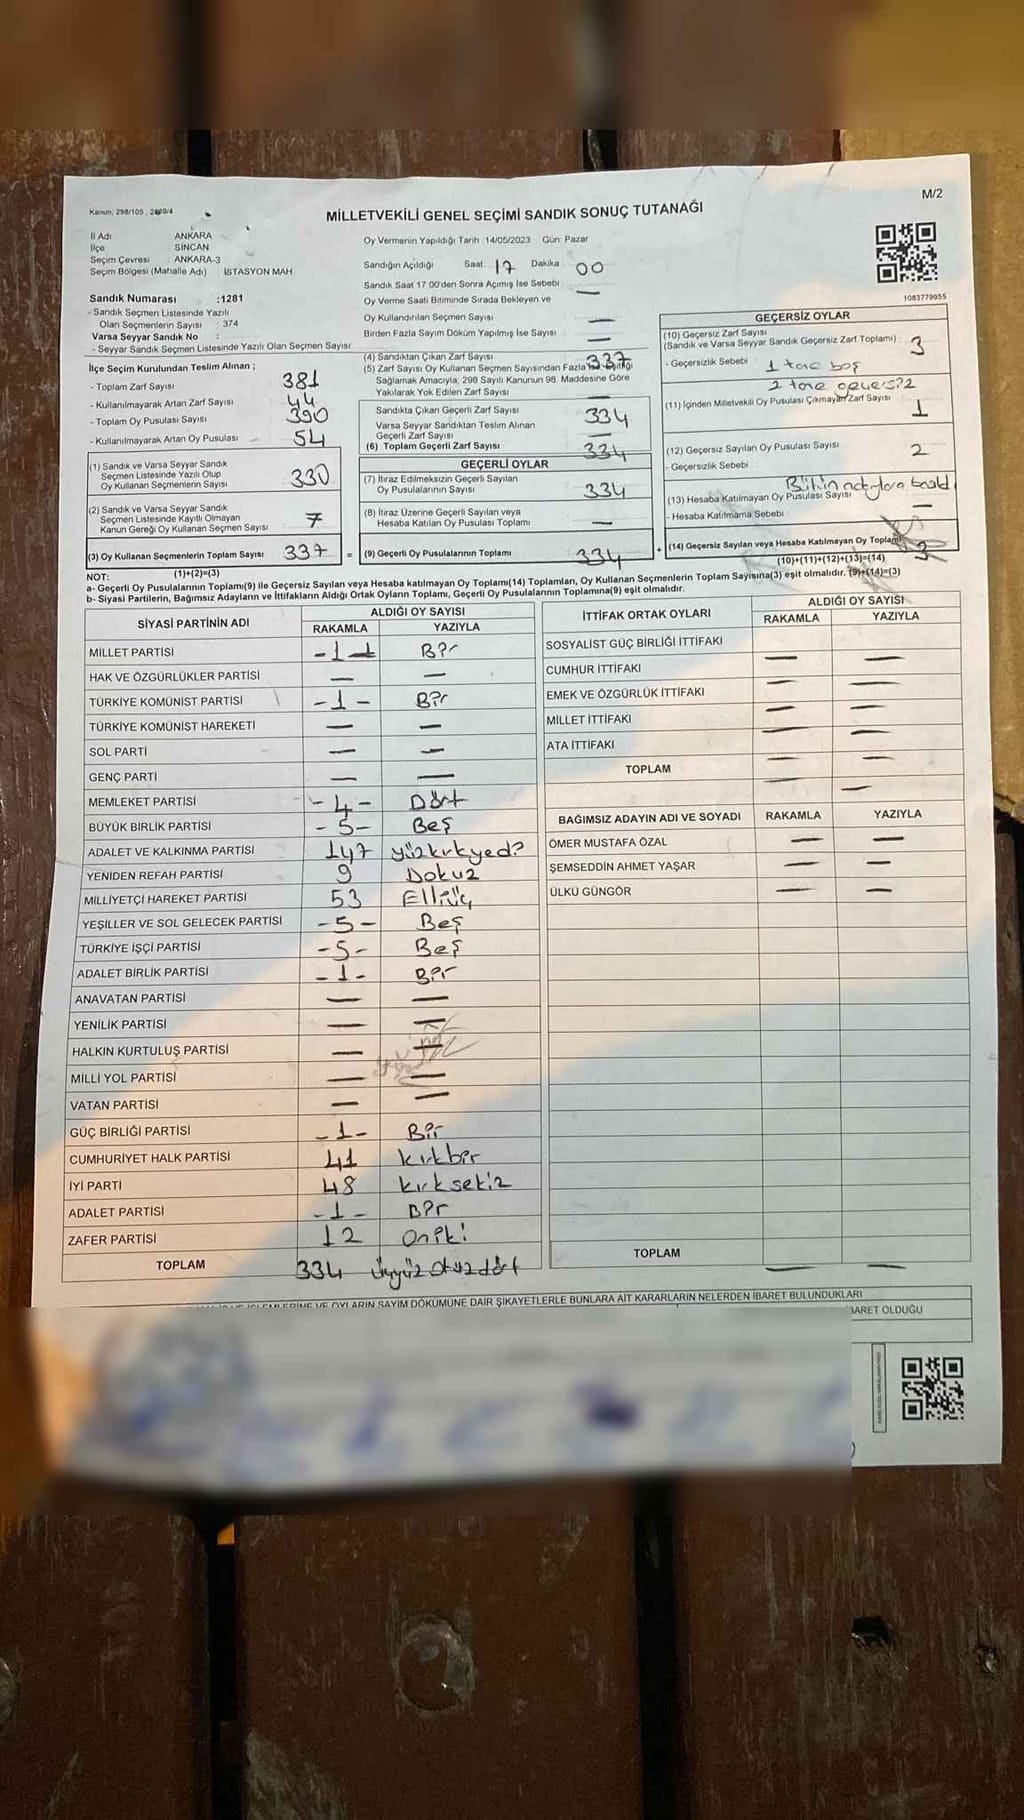 M/2
Kanun; 298/105 , 2839/4
MİLLETVEKİLİ GENEL SEÇİMİ SANDIK SONUÇ TUTANAĞI
İl Adı ANKARA
İlçe SİNCAN
Seçim Çevresi : ANKARA-3
Seçim Bölgesi (Mahalle Adı) : İSTASYON MAH
Sandık Numarası :1281
- Sandık Seçmen Listesinde Yazılı
Olan Seçmenlerin Sayısı : 374
Varsa Seyyar Sandık No :
- Seyyar Sandık Seçmen Listesinde Yazılı Olan Seçmen Sayısı:
İlçe Seçim Kurulundan Teslim Alınan ;
- Toplam Zarf Sayısı 381
- Kullanılmayarak Artan Zarf Sayısı 44
- Toplam Oy Pusulası Sayısı 390
- Kullanılmayarak Artan Oy Pusulası 54
(1) Sandık ve Varsa Seyyar Sandık
Seçmen Listesinde Yazılı Olup
Oy Kullanan Seçmenlerin Sayısı 330
(2) Sandık ve Varsa Seyyar Sandık
Seçmen Listesinde Kayıtlı Olmayan
Kanun Gereği Oy Kullanan Seçmen Sayısı 7
(3) Oy Kullanan Seçmenlerin Toplam Sayısı 337 =
(1)+(2)=(3)
Oy Vermenin Yapıldığı Tarih :14/05/2023 Gün: Pazar
Sandığın Açıldığı Saat: 17 Dakika 00
Sandık Saat 17.00'den Sonra Açımış İse Sebebi : —
Oy Verme Saati Bitiminde Sırada Bekleyen ve
Oy Kullandırılan Seçmen Sayısı : —
Birden Fazla Sayım Döküm Yapılmış İse Sayısı : —
(4) Sandıktan Çıkan Zarf Sayısı 337
(5) Zarf Sayısı Oy Kullanan Seçmen Sayısından Fazla İse
Sağlamak Amacıyla, 298 Sayılı Kanunun 98. Maddesine Göre
Yakılarak Yok Edilen Zarf Sayısı —
Sandıkta Çıkan Geçerli Zarf Sayısı 334
Varsa Seyyar Sandıktan Teslim Alınan
Geçerli Zarf Sayısı —
(6) Toplam Geçerli Zarf Sayısı 334
GEÇERLİ OYLAR
(7) İtiraz Edilmeksizin Geçerli Sayılan
Oy Pusulalarının Sayısı 334
(8) İtiraz Üzerine Geçerli Sayılan veya
Hesaba Katılan Oy Pusulası Toplamı —
(9) Geçerli Oy Pusulalarının Toplamı 334 +
1083779955
GEÇERSİZ OYLAR
(10) Geçersiz Zarf Sayısı
(Sandık ve Varsa Seyyar Sandık Geçersiz Zarf Toplamı) 3
- Geçersizlik Sebebi : 1 tane boş
2 tane
(11) İçinden Milletvekili Oy Pusulası Çıkmayan Zarf Sayısı 1
(12) Geçersiz Sayılan Oy Pusulası Sayısı 2
- Geçersizlik Sebebi
(13) Hesaba Katılmayan Oy Pusulası Sayısı —
- Hesaba Katılmama Sebebi :
(14) Geçersiz Sayılan veya Hesaba Katılmayan Oy Toplamı 3
(10)+(11)+(12)+(13)=(14)
NOT:
a- Geçerli Oy Pusulalarının Toplamı(9) ile Geçersiz Sayılan veya Hesaba katılmayan Oy Toplamı(14) Toplamları, Oy Kullanan Seçmenlerin Toplam Sayısına(3) eşit olmalıdır. (9)+(14)=(3)
b- Siyasi Partilerin, Bağımsız Adayların ve İttifakların Aldığı Ortak Oyların Toplamı, Geçerli Oy Pusulalarının Toplamına(9) eşit olmalıdır.
SİYASİ PARTİNİN ADI ALDIĞI OY SAYISI
RAKAMLA YAZIYLA
MİLLET PARTİSİ -1- Bir
HAK VE ÖZGÜRLÜKLER PARTİSİ — —
TÜRKİYE KOMÜNİST PARTİSİ -1- Bir
TÜRKİYE KOMÜNİST HAREKETİ — —
SOL PARTİ — —
GENÇ PARTİ — —
MEMLEKET PARTİSİ -4- Dört
BÜYÜK BİRLİK PARTİSİ -5- Beş
ADALET VE KALKINMA PARTİSİ 147 yüzkırkyedi
YENİDEN REFAH PARTİSİ 9 Dokuz
MİLLİYETÇİ HAREKET PARTİSİ 53 Elliüç
YEŞİLLER VE SOL GELECEK PARTİSİ -5- Beş
TÜRKİYE İŞÇİ PARTİSİ -5- Beş
ADALET BİRLİK PARTİSİ -1- Bir
ANAVATAN PARTİSİ — —
YENİLİK PARTİSİ — —
HALKIN KURTULUŞ PARTİSİ — —
MİLLİ YOL PARTİSİ — —
VATAN PARTİSİ — —
GÜÇ BİRLİĞİ PARTİSİ -1- Bir
CUMHURİYET HALK PARTİSİ 41 kırkbir
İYİ PARTİ 48 kırksekiz
ADALET PARTİSİ -1- Bir
ZAFER PARTİSİ 12 oniki
TOPLAM 334 üçyüz otuzdört
İTTİFAK ORTAK OYLARI ALDIĞI OY SAYISI
RAKAMLA YAZIYLA
SOSYALİST GÜÇ BİRLİĞİ İTTİFAKI — —
CUMHUR İTTİFAKI — —
EMEK VE ÖZGÜRLÜK İTTİFAKI — —
MİLLET İTTİFAKI — —
ATA İTTİFAKI — —
TOPLAM — —
BAĞIMSIZ ADAYIN ADI VE SOYADI RAKAMLA YAZIYLA
ÖMER MUSTAFA ÖZAL — —
ŞEMSEDDİN AHMET YAŞAR — —
ÜLKÜ GÜNGÖR — —
TOPLAM — —
OYLARIN SAYIM DÖKÜMÜNE DAİR ŞİKAYETLERLE BUNLARA AİT KARARLARIN NELERDEN İBARET BULUNDUKLARI
İBARET OLDUĞU